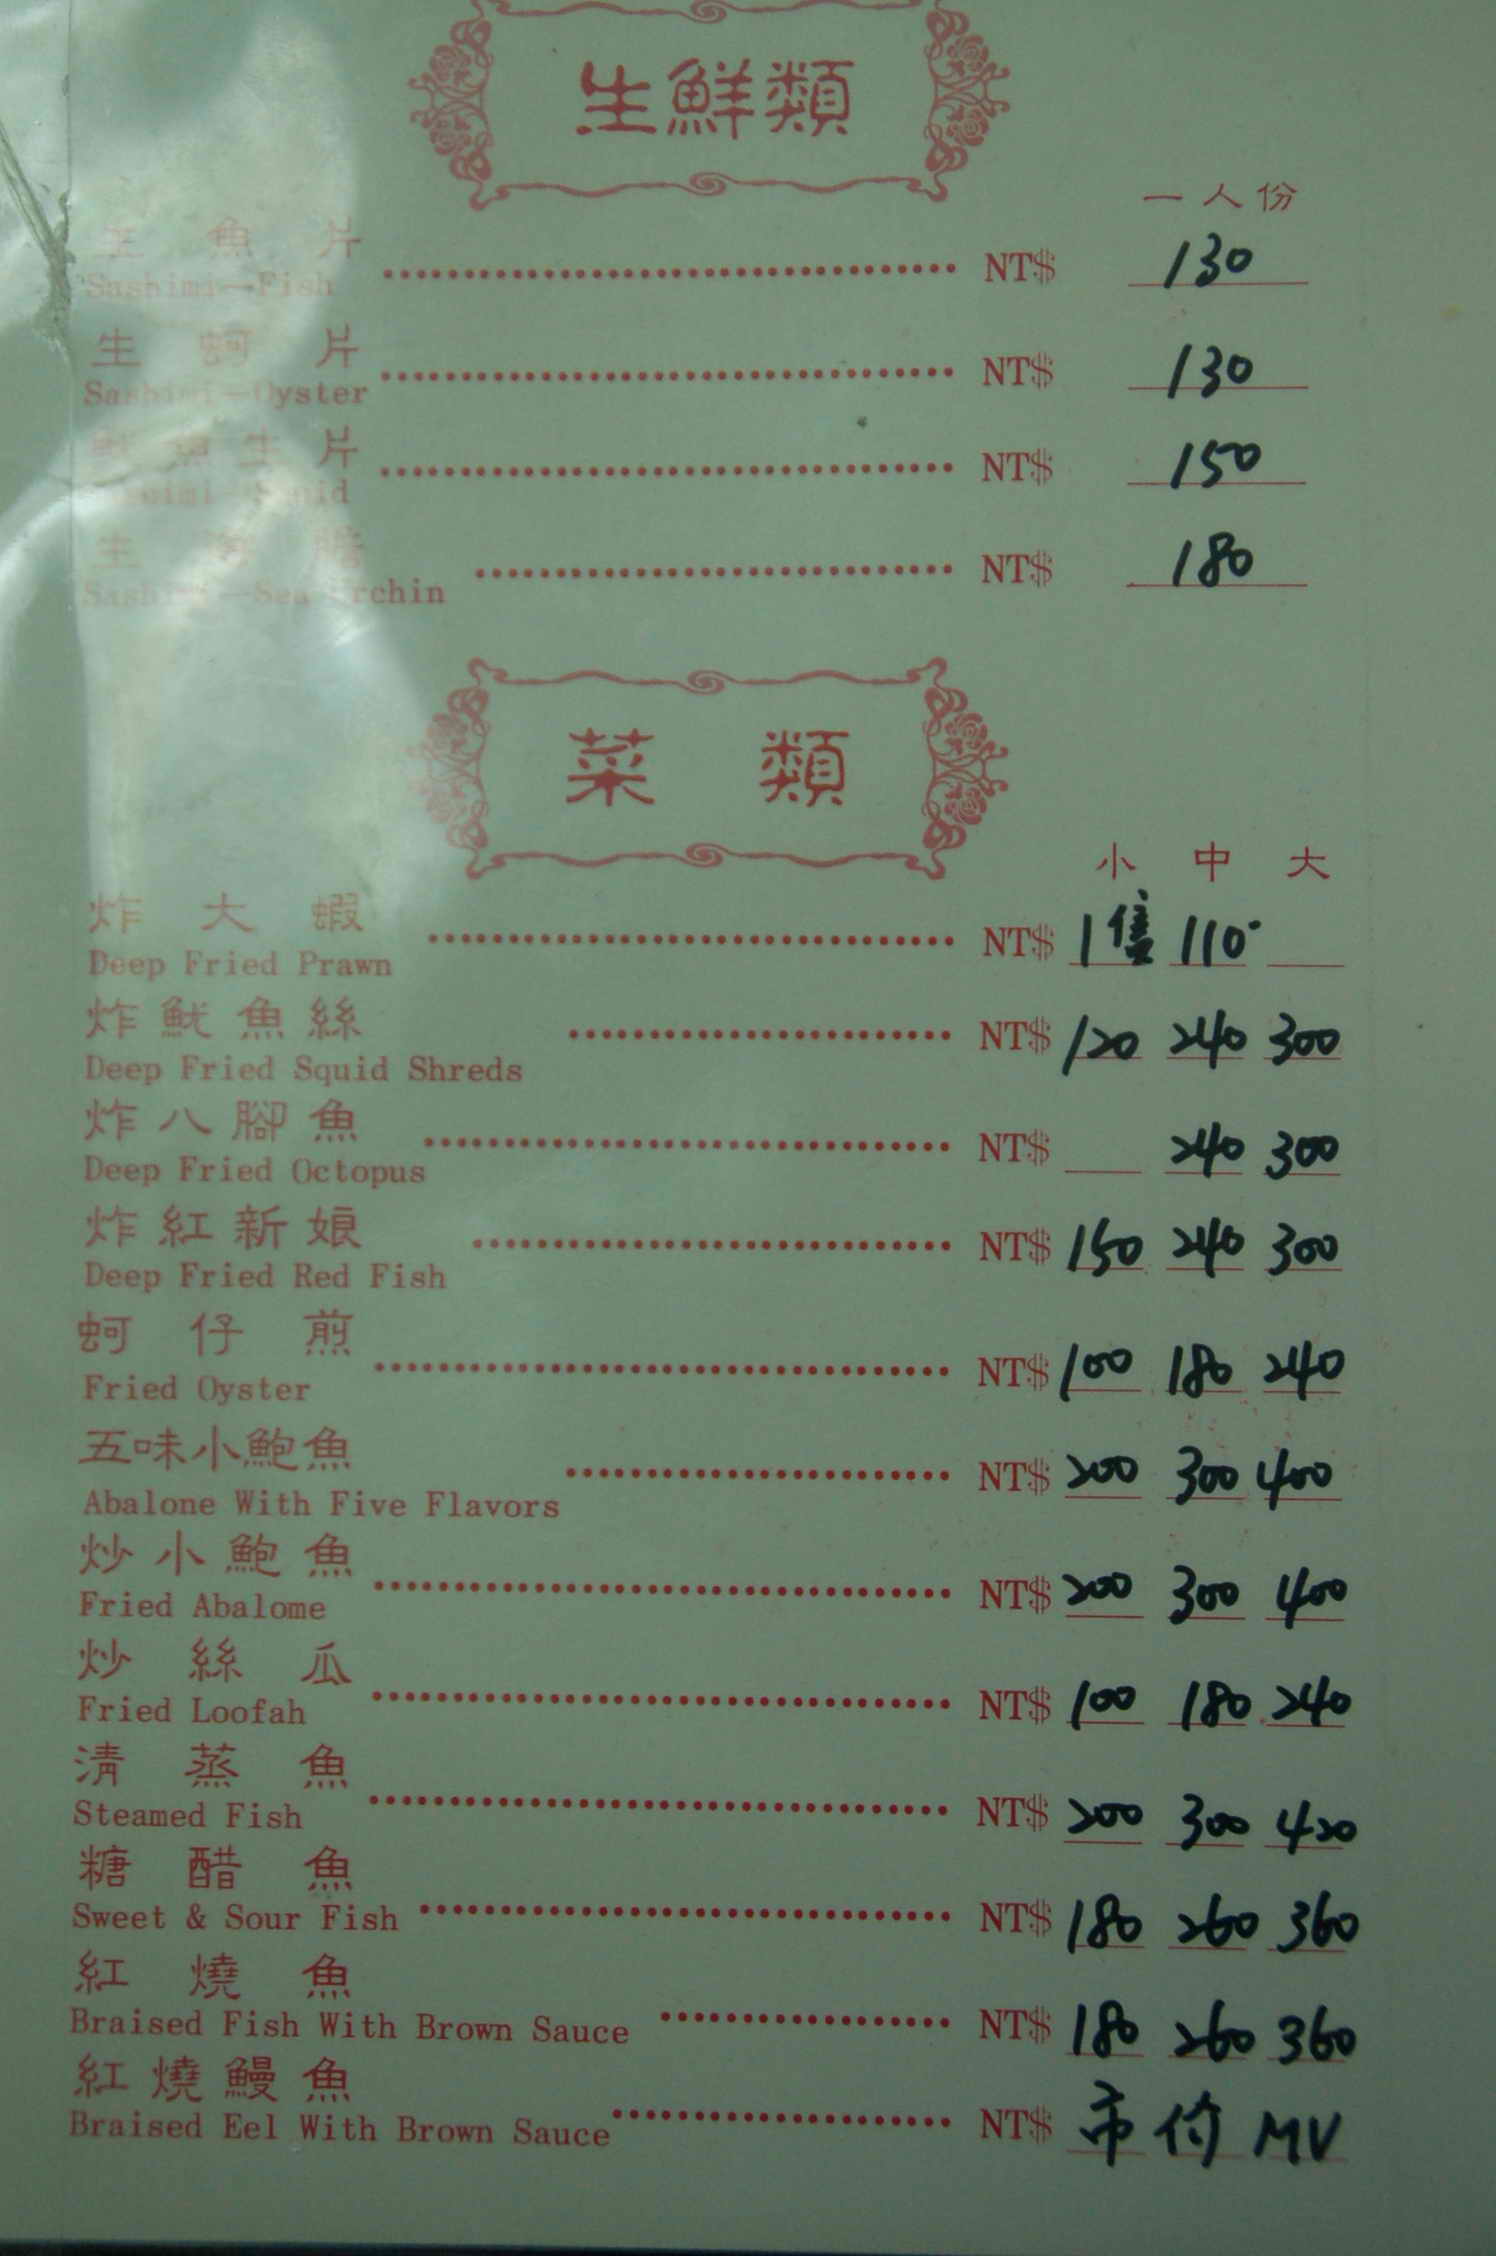 生鮮類
一人份
生魚片 NT$ 130
Sashimi—Fish
生蚵片 NT$ 130
Sashimi—Oyster
魷魚生片 NT$ 150
Sashimi—Squid
生海膽 NT$ 180
Sashimi—Sea Urchin
菜類
小 中 大
炸大蝦 NT$ 1隻 110
Deep Fried Prawn
炸魷魚絲 NT$ 120 240 300
Deep Fried Squid Shreds
炸八腳魚 NT$ 240 300
Deep Fried Octopus
炸紅新娘 NT$ 150 240 300
Deep Fried Red Fish
蚵仔煎 NT$ 100 180 240
Fried Oyster
五味小鮑魚 NT$ 200 300 400
Abalone With Five Flavors
炒小鮑魚 NT$ 200 300 400
Fried Abalome
炒絲瓜 NT$ 100 180 240
Fried Loofah
清蒸魚 NT$ 200 300 420
Steamed Fish
糖醋魚 NT$ 180 260 360
Sweet & Sour Fish
紅燒魚 NT$ 180 260 360
Braised Fish With Brown Sauce
紅燒鰻魚 NT$ 市价 MV
Braised Eel With Brown Sauce